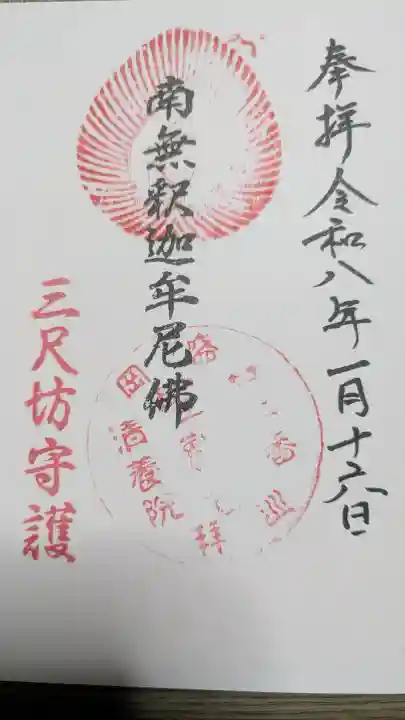 奉拝 令和八年一月十六日
南無釈迦牟尼佛
三尺坊守護
清養院